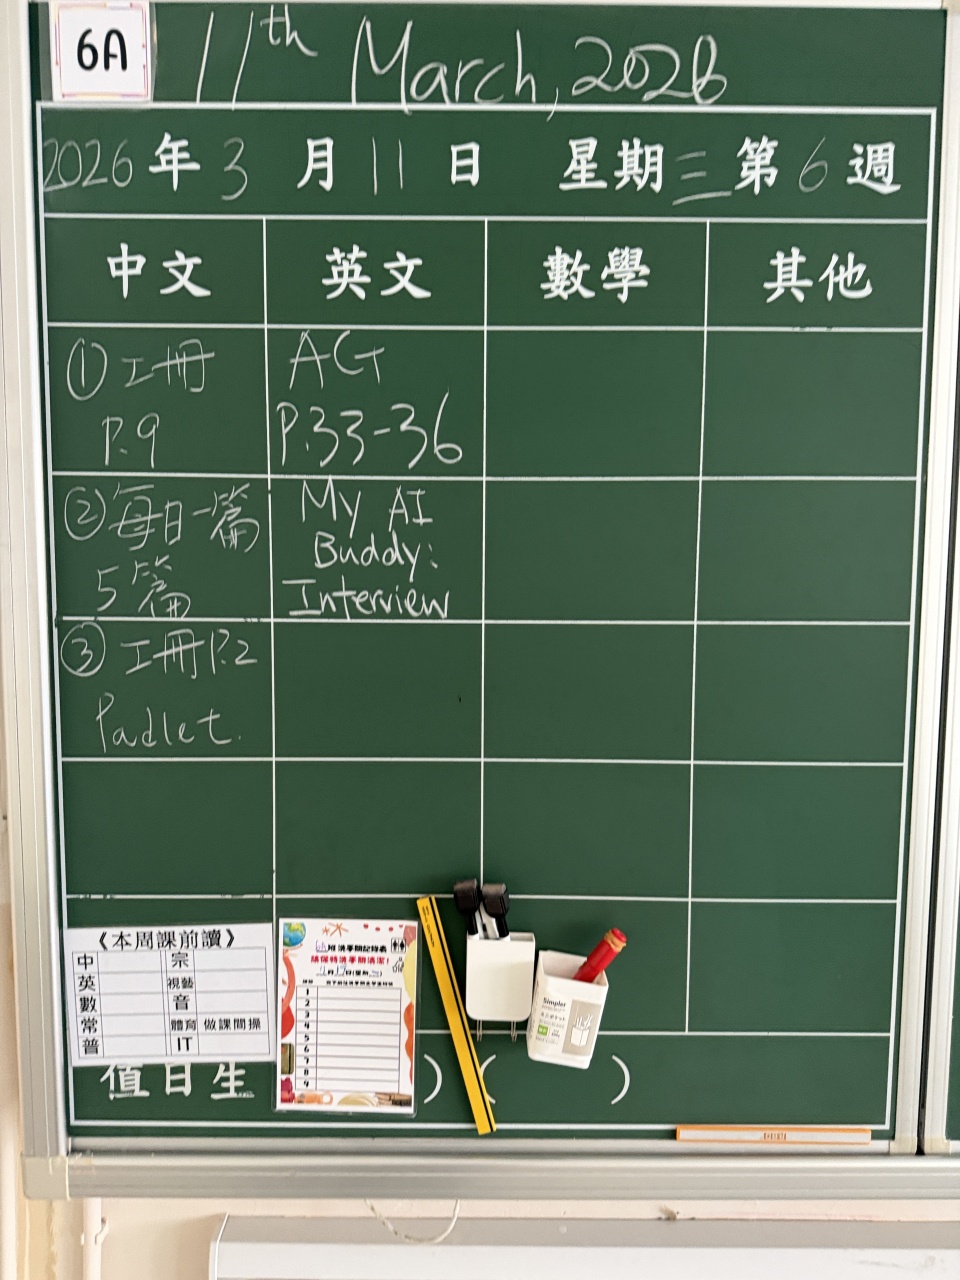 6A
11th March, 2026
2026年3月11日 星期三 第6週
中文 英文 數學 其他
①工冊
P.9
ACT
P.33-36
②每日一篇
5篇
My AI
Buddy:
Interview
③工冊P.2
Padlet.
《本周課前讀》
中 宗
英 視藝
數 音
常 體育 做課間操
普 IT
值日生 ) ( )
請保持洗手間清潔!
1
2
3
4
5
6
7
8
9
Simpler